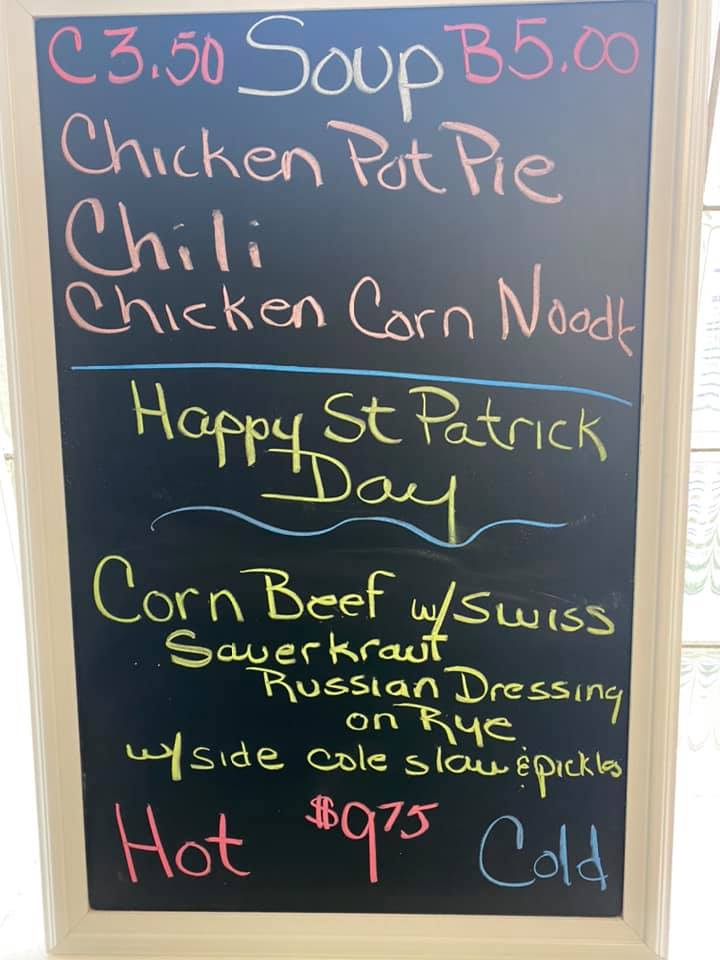 C3.50 Soup B5.00
Chicken Pot Pie
Chili
Chicken Corn Noodle
Happy St Patrick
Day
Corn Beef w/Swiss
Sauerkraut
Russian Dressing
on Rye
w/side cole slaw & pickles
Hot $9.75 Cold